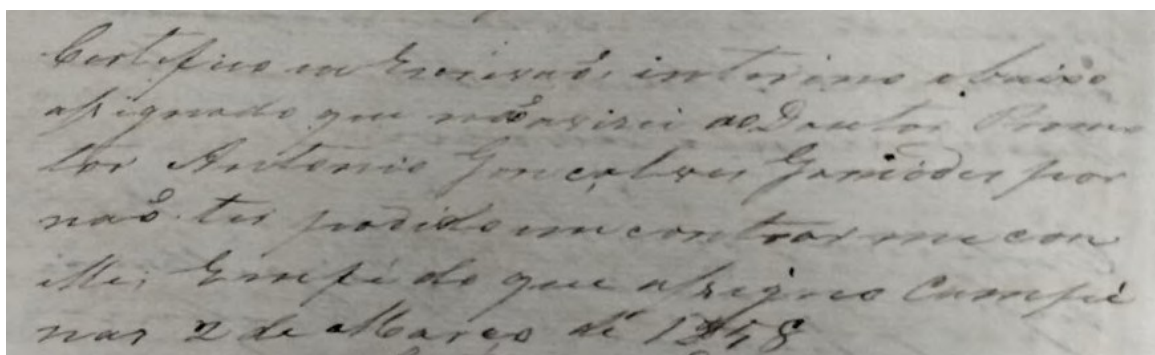 Certifico eu Escrivaõ interino abaixo
assignado que naõ avizei ao Doutor Promo
tor Antonio Gonçalves Gomides por
naõ ter podido emcontrarme con
elle; Emfé do que assigno Campi
nas 2 de Março de 1858